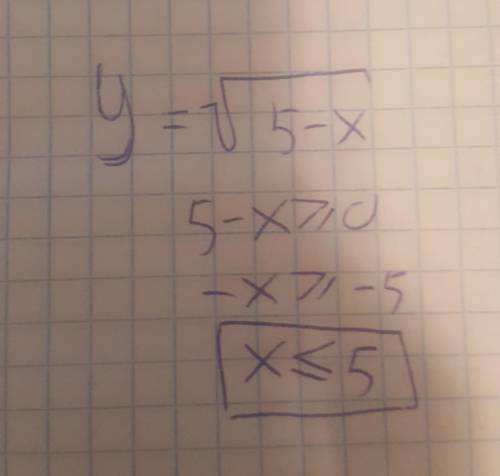 y = √5-x
5-x⩾0
-x⩾-5
x≤5